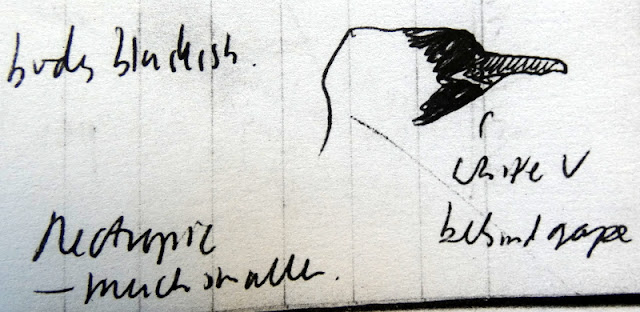 body blackish.
white V
behind gape
Neotropic
– much smaller.